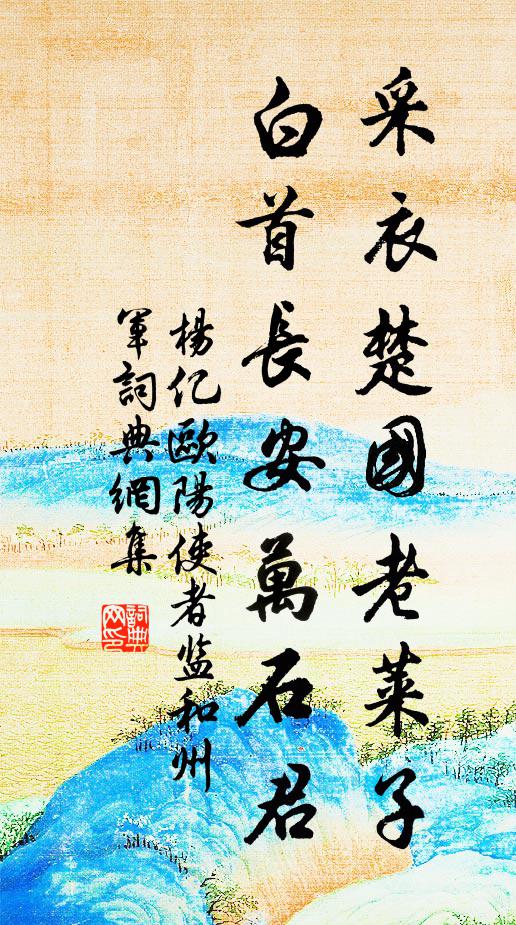 采衣楚國老萊子
白首長安萬石君
楊亿歐陽使者监和州
軍詞典網集
詞典
网印